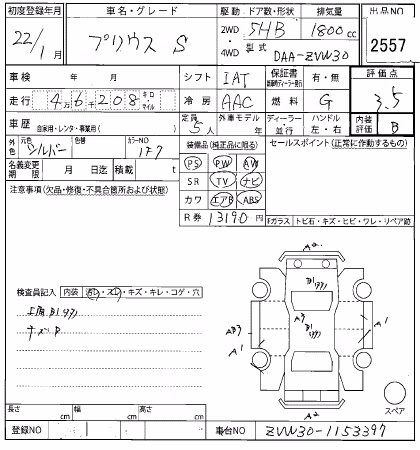 初度登録年月 車名・グレード 駆動 ドア数・形状 排気量 出品NO
22/1月 プリウス S 2WD 4WD 5HB 1800cc 2557
型式 DAA-ZVW30
車検 年 月 シフト IAT 保証書 有・無 評価点
走行 4万6千208キロ マイル 冷房 AAC 燃料 G 3.5
車歴 自家用・レンタ・事業用( ) 定員 5人 外車モデル 年 ディーラー・並行 ハンドル 左・右 内装評価 B
外色 元色 シルバー 色替 カラーNO 1F7 装備品(純正品に限る) セールスポイント(正常に作動するもの)
名義変更期限 月 日迄 積載 t PS PW AW
注意事項(欠品・修復・不具合箇所および状態) SR TV ナビ
カワ エアB ABS
R券 13190円 Fガラス トビ石・キズ・ヒビ・ワレ・リペア跡
検査員記入 内装 汚レ・スレ・キズ・キレ・コゲ・穴
A2
B1
A3
AB3
A1
B1
A1
A2
スペア
長さ cm 幅 cm 高さ cm
登録NO 車台NO ZVW30-1153397